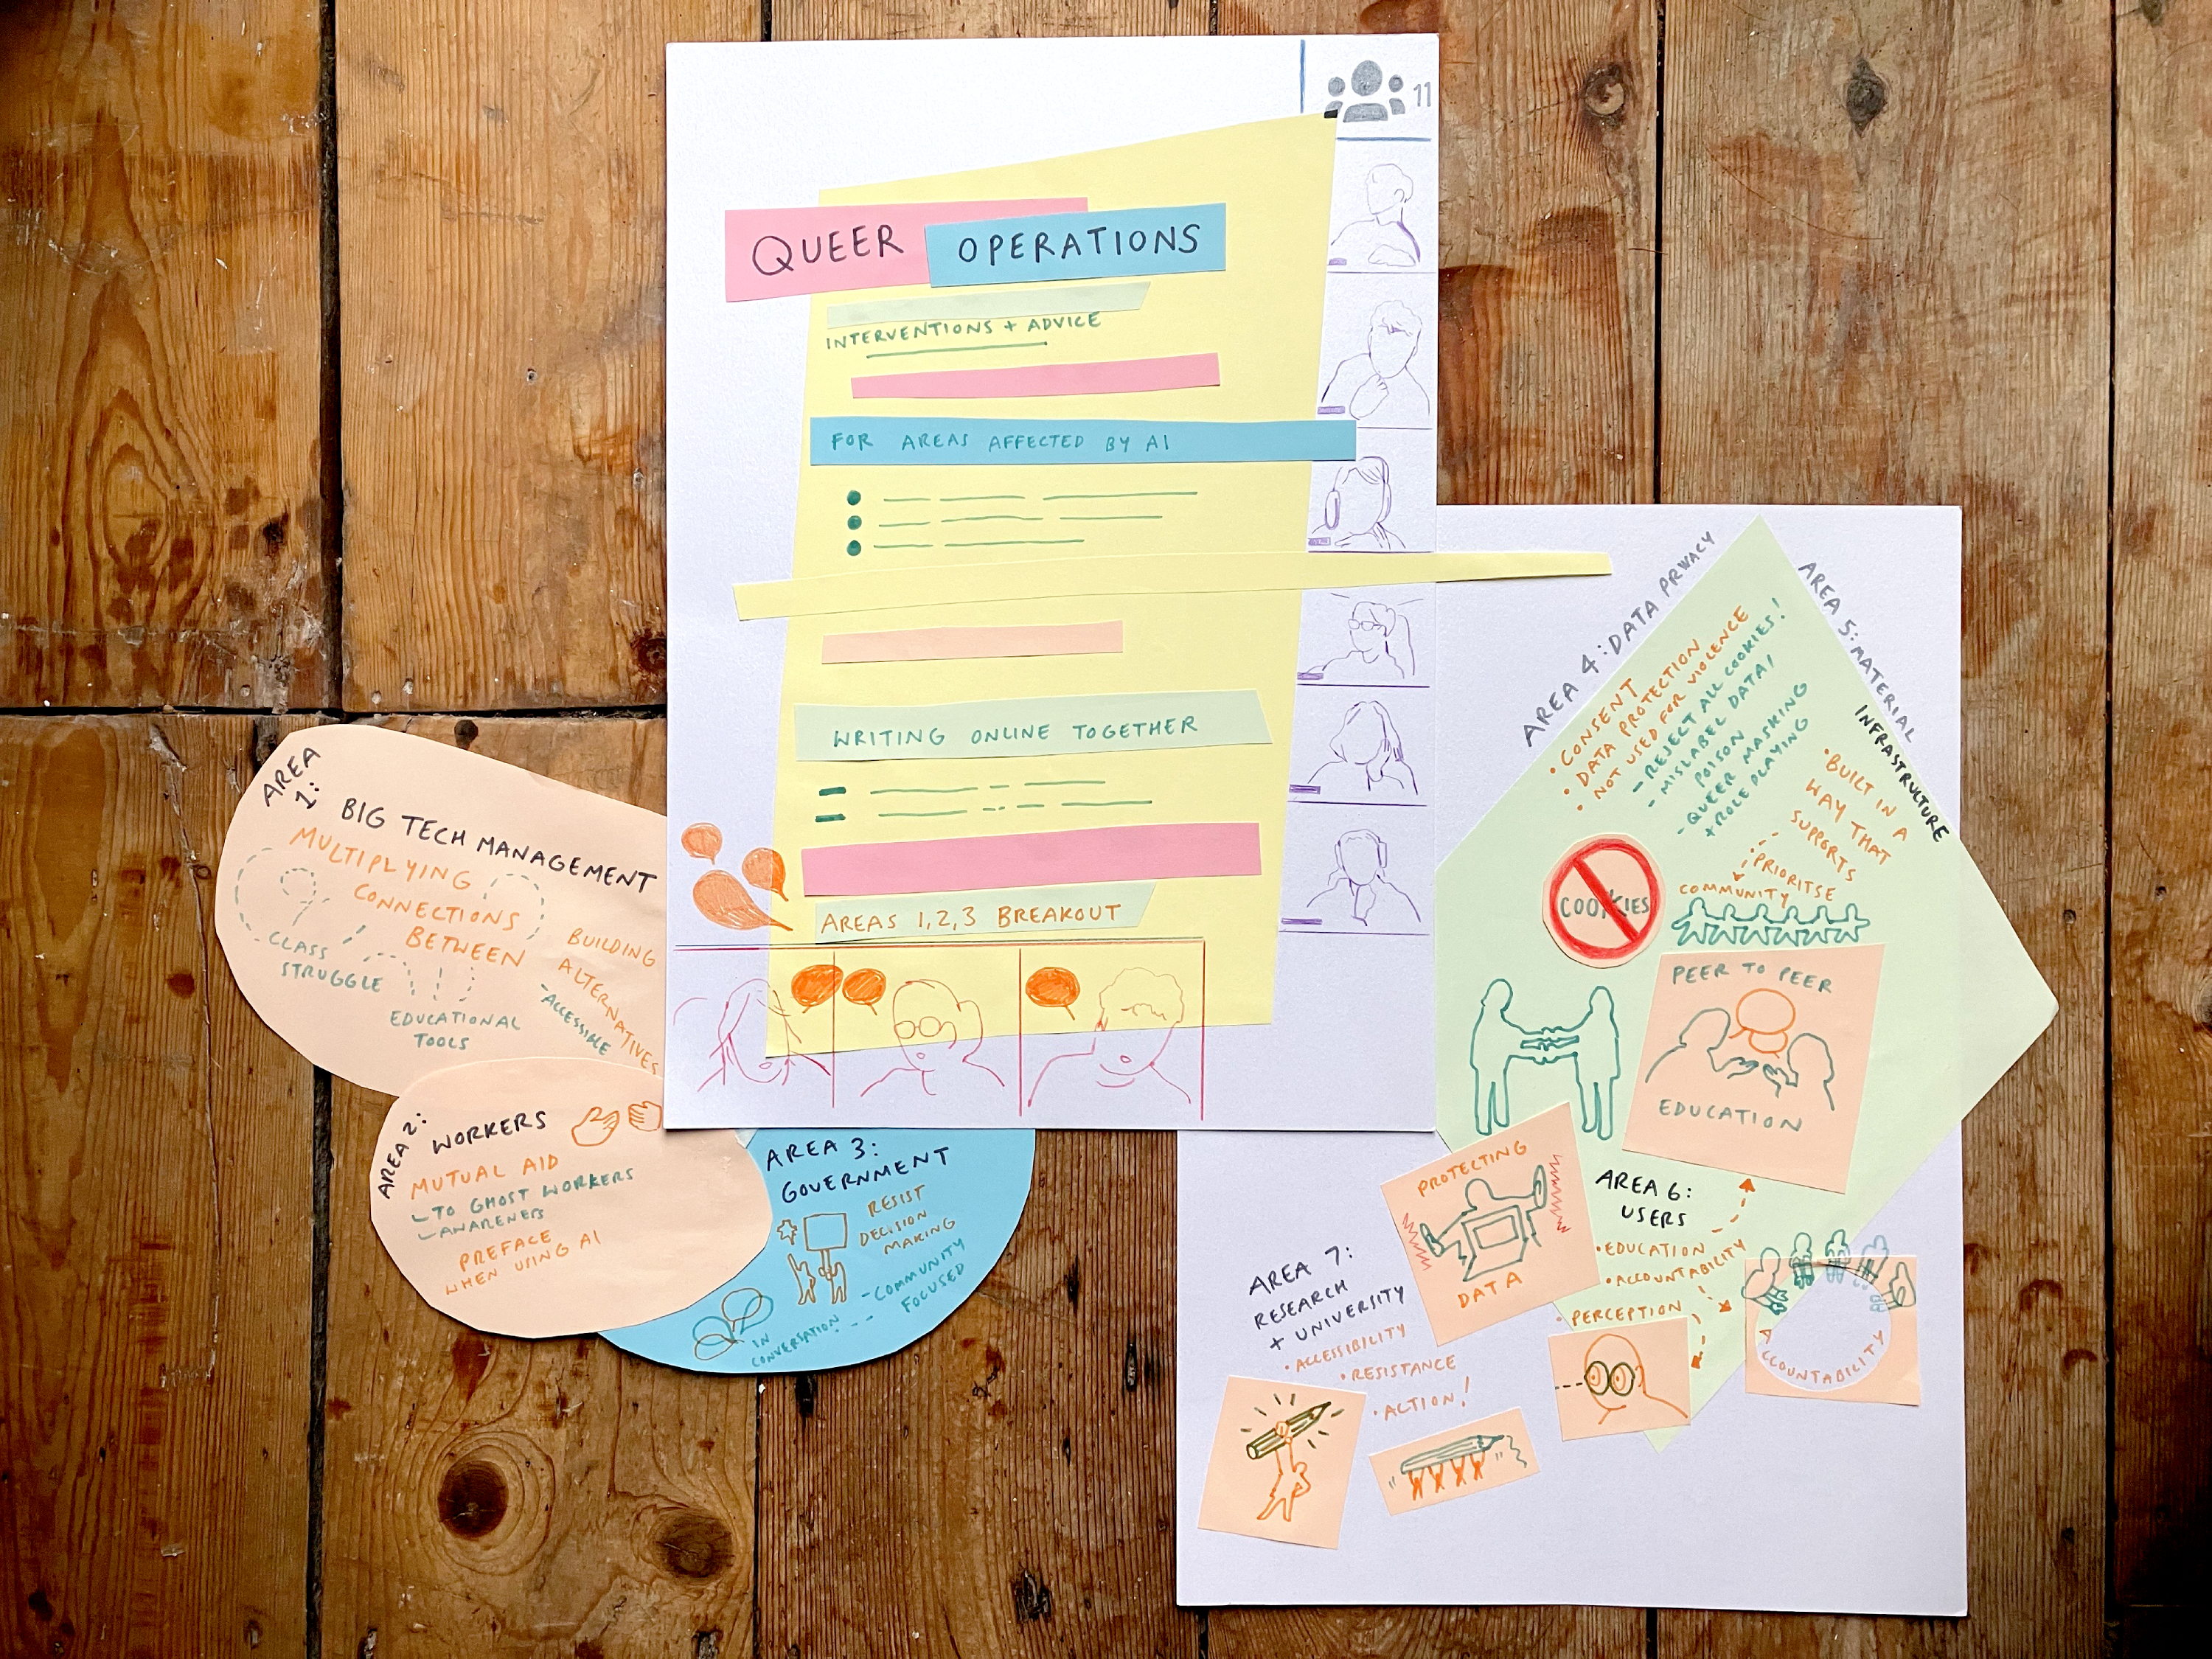 11
QUEER OPERATIONS
INTERVENTIONS + ADVICE
FOR AREAS AFFECTED BY AI
WRITING ONLINE TOGETHER
AREAS 1,2,3 BREAKOUT
AREA
1:
BIG TECH MANAGEMENT
MULTIPLYING
CONNECTIONS
BETWEEN
CLASS
STRUGGLE
EDUCATIONAL
TOOLS
BUILDING
ALTERNATIVES
- ACCESSIBLE
AREA 2:
WORKERS
MUTUAL AID
TO GHOST WORKERS
AWARENESS
PREFACE
WHEN USING AI
AREA 3:
GOVERNMENT
RESIST
DECISION
MAKING
- COMMUNITY
FOCUSED
IN
CONVERSATION
AREA 4: DATA PRIVACY
• CONSENT
• DATA PROTECTION
• NOT USED FOR VIOLENCE
- REJECT ALL COOKIES!
- MISLABEL DATA/
POISON
- QUEER MASKING
+ ROLE PLAYING
COOKIES
AREA 5: MATERIAL
INFRASTRUCTURE
• BUILT IN A
WAY THAT
SUPPORTS
• PRIORITSE
COMMUNITY
PEER TO PEER
EDUCATION
PROTECTING
DATA
AREA 6:
USERS
• EDUCATION
• ACCOUNTABILITY
• PERCEPTION
ACCOUNTABILITY
AREA 7:
RESEARCH
+ UNIVERSITY
• ACCESSIBILITY
• RESISTANCE
• ACTION!